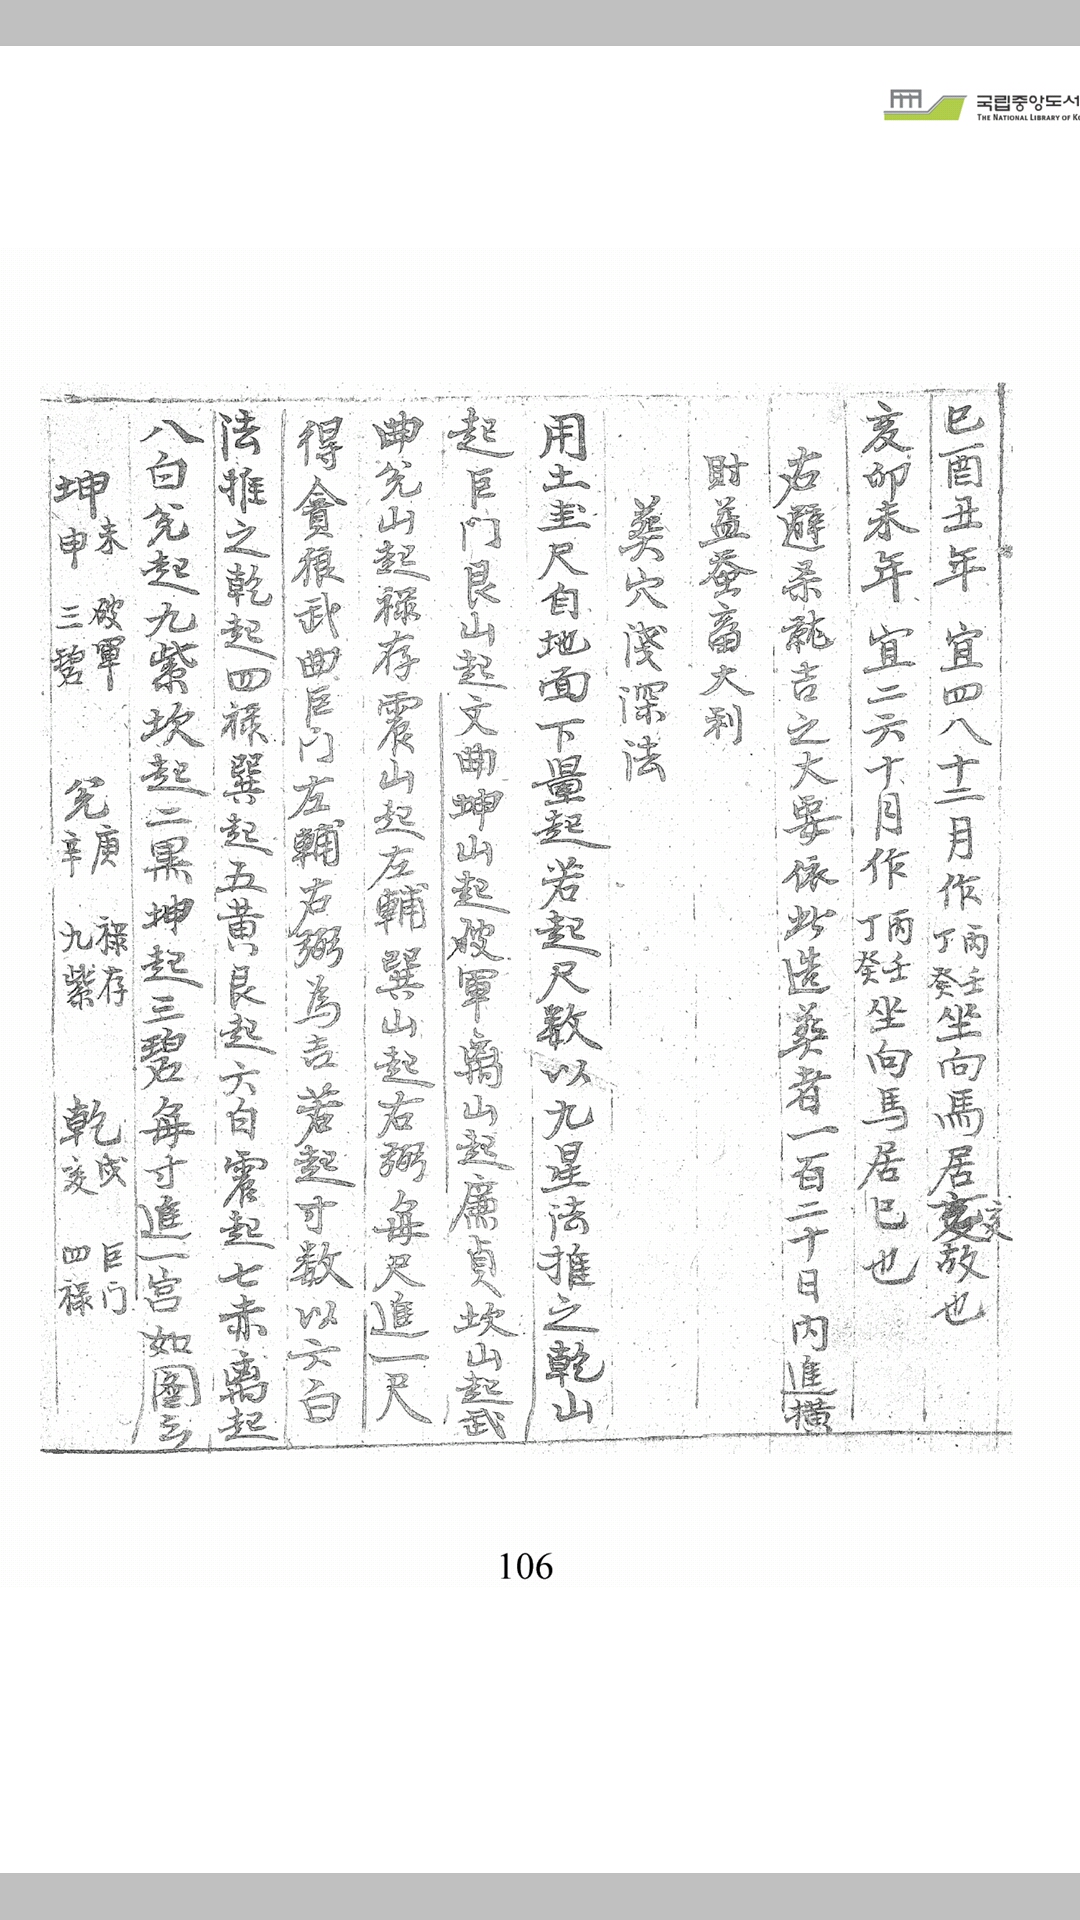 국립중앙도서
THE NATIONAL LIBRARY OF KO
巳酉丑年 宜四八十二月作丙壬丁癸坐向馬居亥故也
亥
亥卯未年 宜二六十月作丙壬丁癸坐向馬居巳也
右避杀就吉之大要依此造葬者一百二十日内進橫
財益蚕畜大利
葬穴淺深法
用土圭尺自地面下量起若起尺数以九星法推之乾山
起巨门艮山起文曲坤山起破軍离山起廉貞坎山起武
曲兊山起禄存震山起左輔巽山起右弼每尺進一尺
得貪狼武曲巨门左輔右弼為吉若起寸数以六白
法推之乾起四禄巽起五黄艮起六白震起七赤离起
八白兊起九紫坎起二黒坤起三碧每寸進一宫如圖云
坤未申 破軍三碧 兊庚辛 禄存九紫 乾戌亥 巨门四禄
106